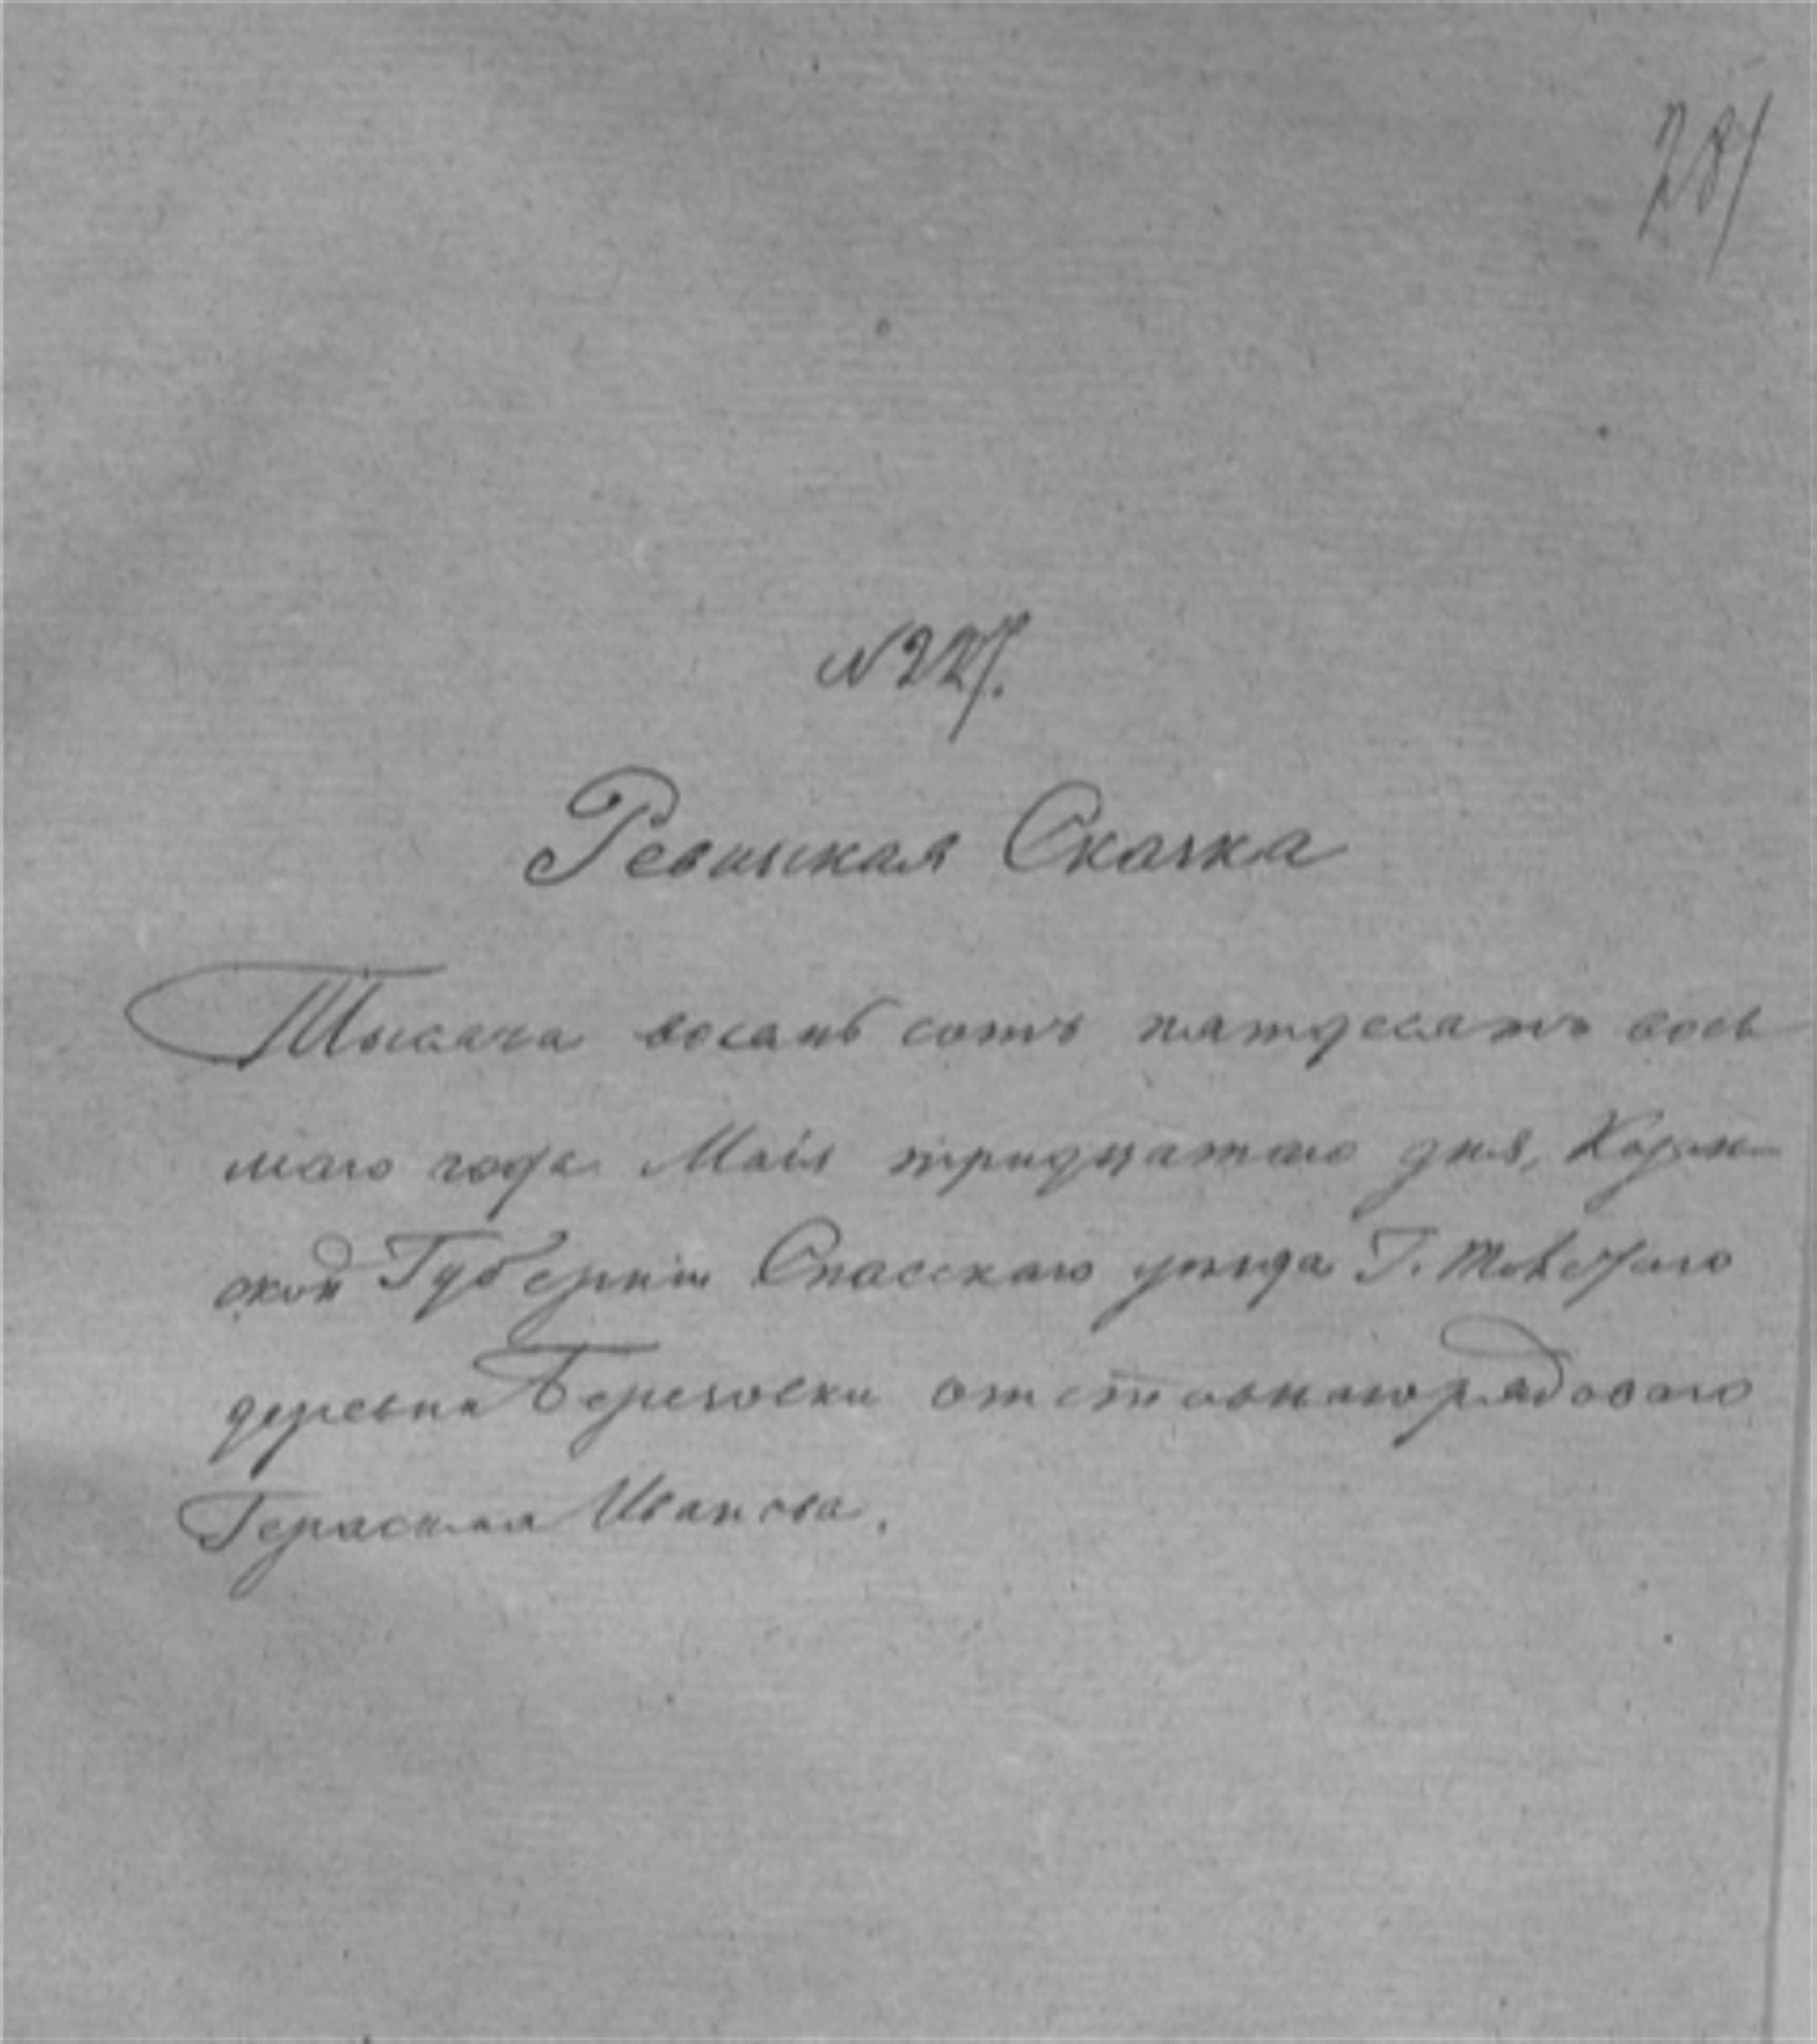 281
№ 227.
Ревиская Сказка
Тысяча восемь сотъ пятдесятъ вось
маго года Маія тридцатаго дня, Казан-
ской Губерніи Спасскаго уѣзда Г.
деревни Березовки отставнаго рядоваго
Герасима Иванова.